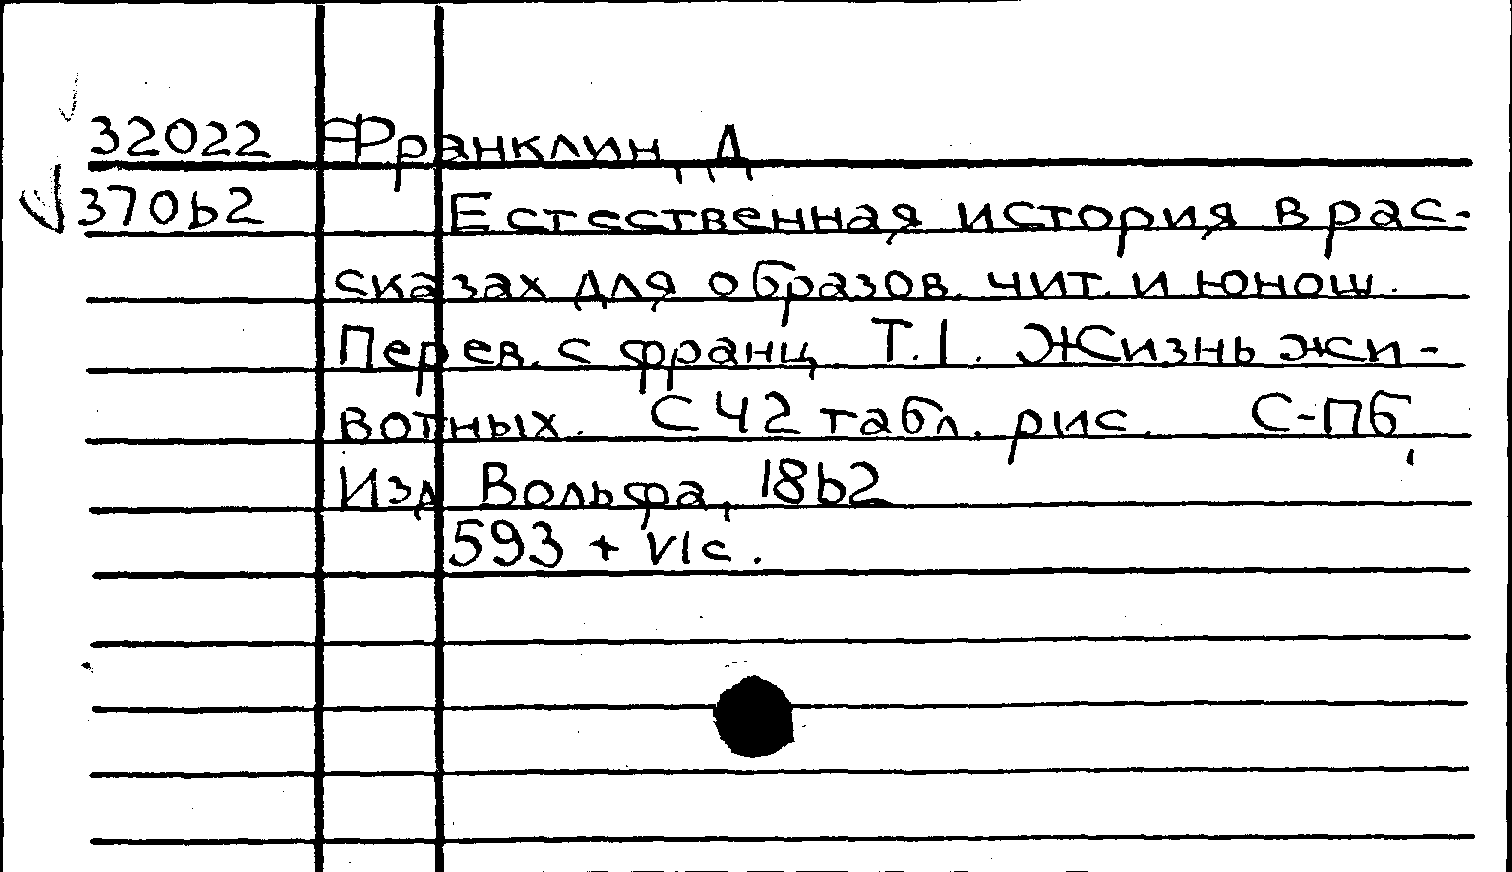 32022 Франклин, Д
37062 Естественная история в рас-
сказах для образов. чит. и юнош.
Перев. с франц. Т.I. Жизнь жи-
вотных. С 42 табл. рис. С-Пб,
Изд Вольфа, 1862
593 + VI с.